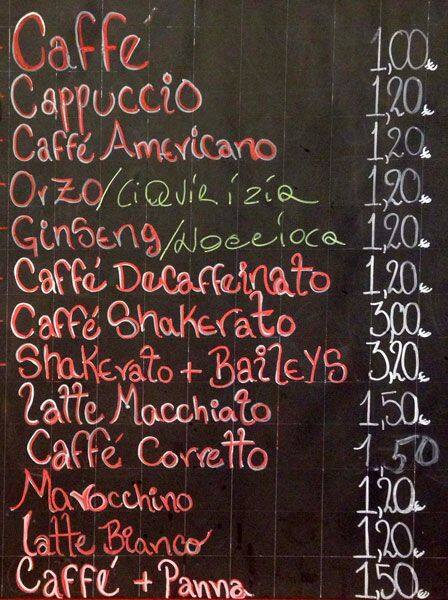 Caffé 1,00€
Cappuccio 1,20€
Caffé Americano 1,20€
Orzo/Liquirizia 1,20€
Ginseng/Nocciola 1,20€
Caffé Decaffeinato 1,20€
Caffé Shakerato 3,00€
Shakerato + Baileys 3,20€
Latte Macchiato 1,50€
Caffé Corretto 1,50
Marocchino 1,20€
Latte Bianco 1,20€
Caffé + Panna 1,50€